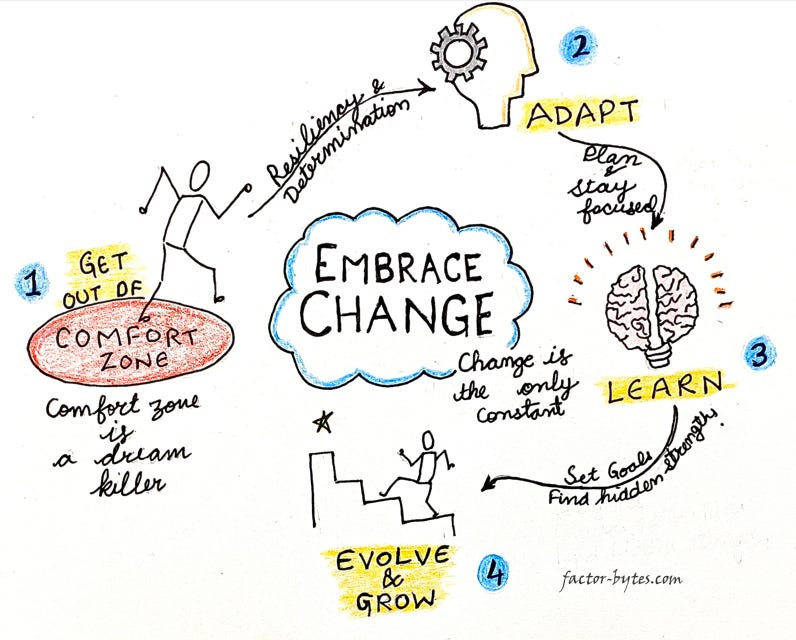 1
GET
OUT OF
COMFORT
ZONE
Comfort zone
is
a dream
killer
Resiliency &
Determination
2
ADAPT
Plan
&
stay
focused
EMBRACE
CHANGE
Change is
the only
constant
3
LEARN
Set Goals
Find hidden strengths.
EVOLVE
&
GROW
4
factor-bytes.com